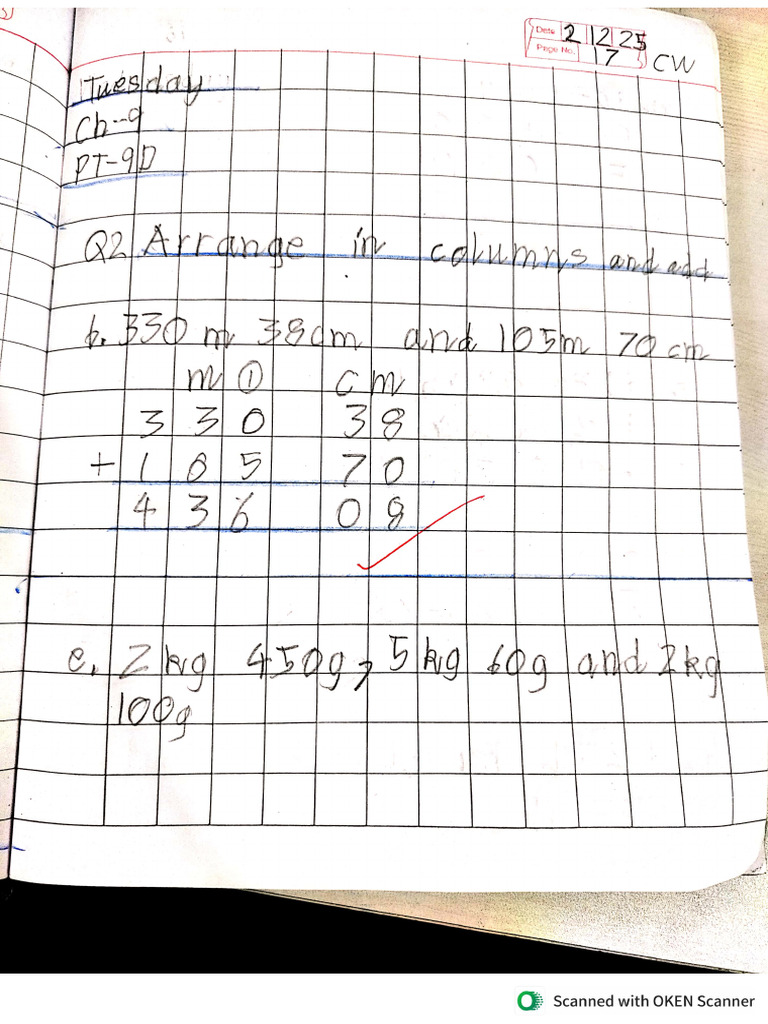 Date 2 12 25
Page No. 17 CW
Tuesday
Ch-9
PT-9D
Q2 Arrange in columns and add
b. 330 m 38cm and 105m 70 cm
m ① cm
3 3 0 3 8
+ 1 0 5 7 0
4 3 6 0 8
e. 2 kg 450g, 5 kg 60g and 2kg
100g
Scanned with OKEN Scanner